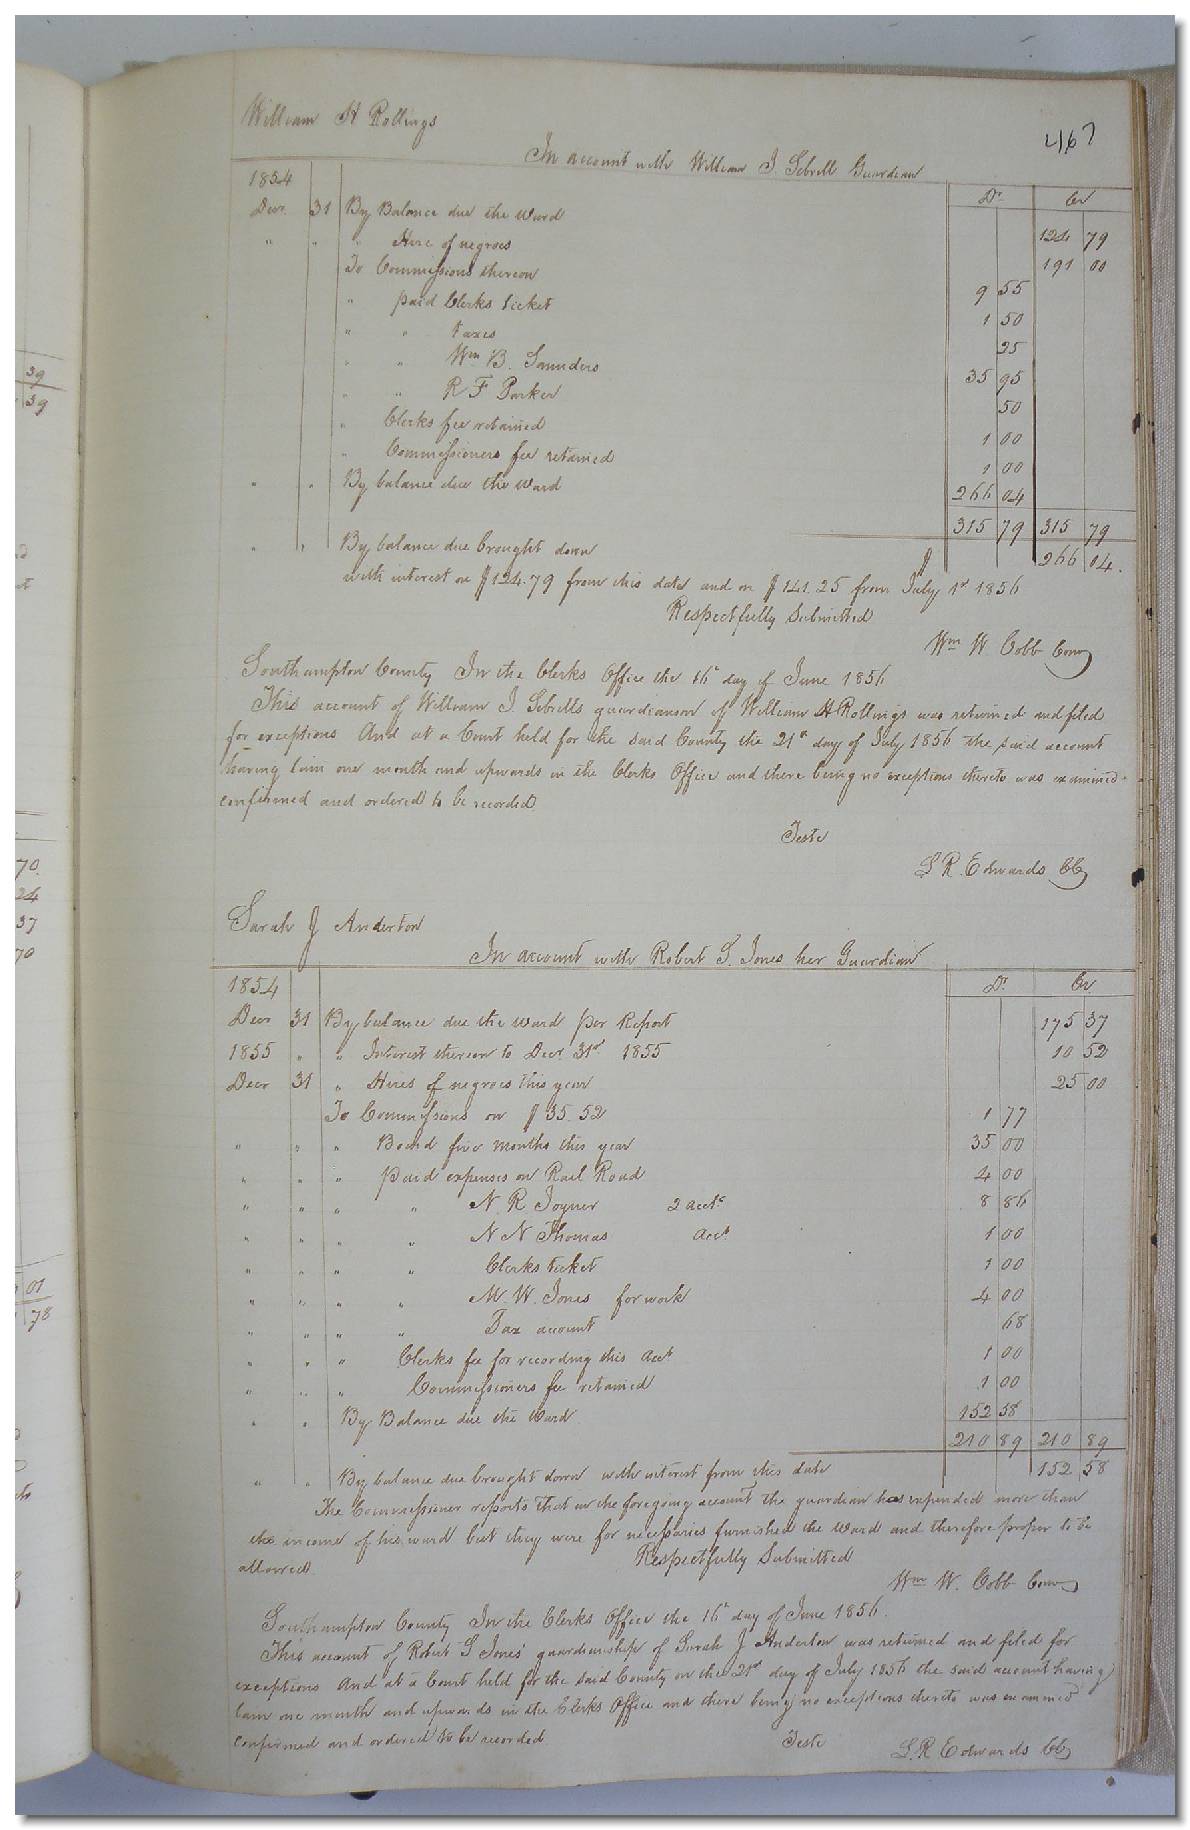 467
William H Rollings
In account with William J. Sebrell Guardian
1854 Dr Cr
Decr 31 By Balance due the Ward 124 79
" " " Hire of negroes 191 00
To Commissions thereon 9 55
" paid Clerks ticket 1 50
" " taxes 25
" " Wm B. Saunders 35 95
" " R F Parker 50
" Clerks fee retained 1 00
" Commissioners fee retained 1 00
" " By balance due the Ward 266 04
315 79 315 79
" " By balance due brought down $ 266 04.
with interest on $124.79 from this date and on $141.25 from July 1st 1856
Respectfully Submitted
Wm W. Cobb Comr
Southampton County In the Clerks Office the 16th day of June 1856
This account of William J. Sebrells guardianson of William H Rollings was returned and filed
for exceptions And at a Court held for the said County the 21st day of July 1856 the said account
having lain one month and upwards in the Clerks Office and there being no exceptions thereto was examined
confirmed and ordered to be recorded
Teste
L R. Edwards CC
Sarah J Anderton
In account with Robert G. Jones her Guardian
1854 Dr Cr
Decr 31 By balance due the Ward per Report 175 37
1855 " " Interest thereon to Decr 31st 1855 10 52
Decr 31 " Hires of negroes this year 25 00
To Commissions on $35.52 1 77
" " " Board five months this year 35 00
" " " paid expenses on Rail Road 4 00
" " " " N. R Joyner 2 accts 8 86
" " " " N N Thomas acct 1 00
" " " " Clerks ticket 1 00
" " " " M. W. Jones for work 4 00
" " " " Tax account 68
" " " Clerks fee for recording this acct 1 00
" " " Commissioners fee retained 1 00
" " By Balance due the Ward 152 58
210 89 210 89
" " By balance due brought down with interest from this date 152 58
The Commissioner reports that in the foregoing account the guardian has expended more than
the income of his ward but they were for necessaries furnished the Ward and therefore proper to be
allowed.
Respectfully Submitted
Wm W. Cobb Comr
Southampton County In the Clerks Office the 16th day of June 1856.
This account of Robert G Jones' guardianship of Sarah J Anderton was returned and filed for
exceptions And at a Court held for the said County on the 21st day of July 1856 the said account having
lain one month and upwards in the Clerks Office and there being no exceptions thereto was examined
confirmed and ordered to be recorded.
Teste
L. R Edwards CC
39
39
70.
24
37
70
01
78